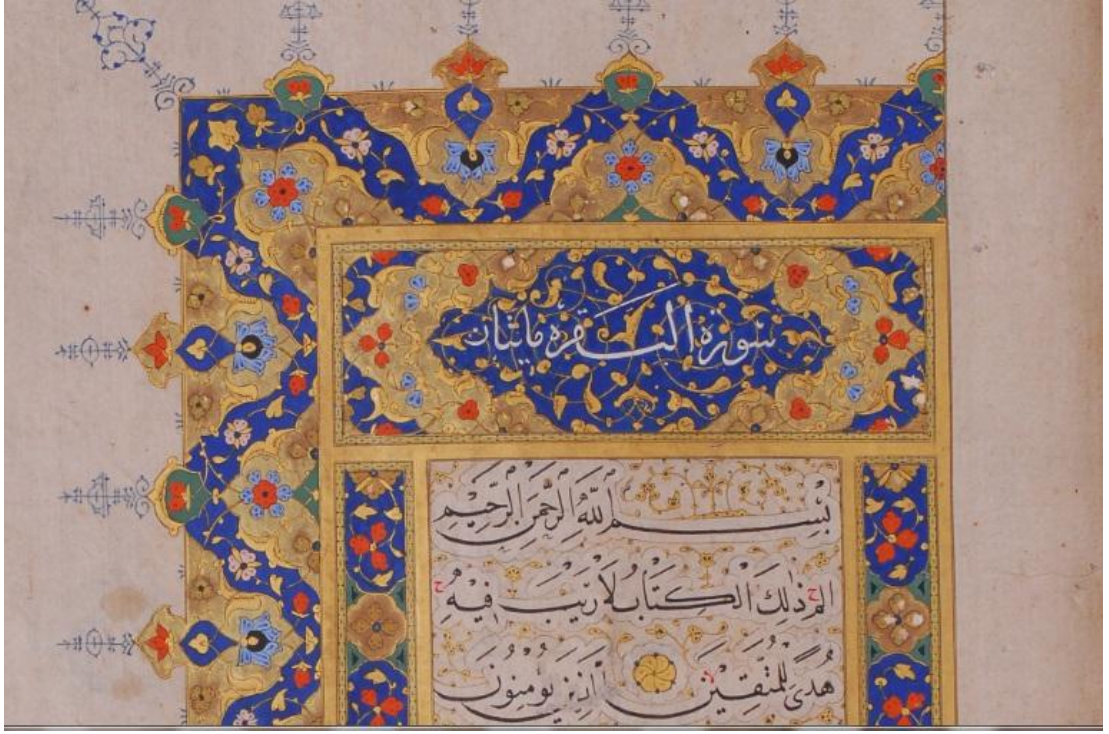 سورة البقره مايتان
بِسْمِ اللَّهِ الرَّحْمَنِ الرَّحِيمِ
الم ج ذَلِكَ الْكِتَابُ لَا رَيْبَ فِيهِ ج
هُدًى لِلْمُتَّقِينَ لا الَّذِينَ يُؤْمِنُونَ